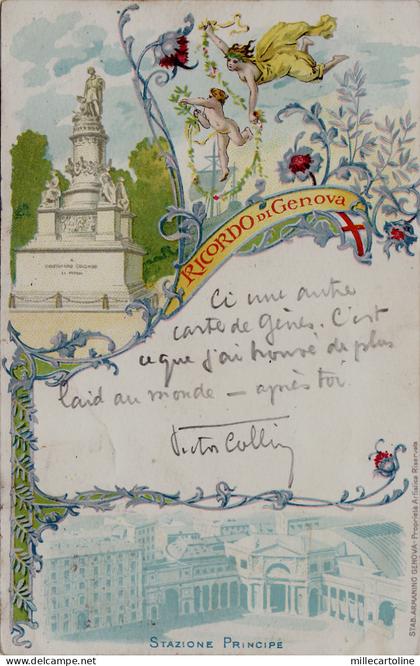 A
CRISTOFORO COLOMBO
LA PATRIA
RICORDO DI GENOVA
Ci une autre
carte de Gênes. C'est
ce que j'ai trouvé de plus
laid au monde — après toi.
Victor Collin
STAZIONE PRINCIPE
STAB. ARMANINO GENOVA - Proprietà Artistica Riservata
www.millecartoline.com
delcampe.net